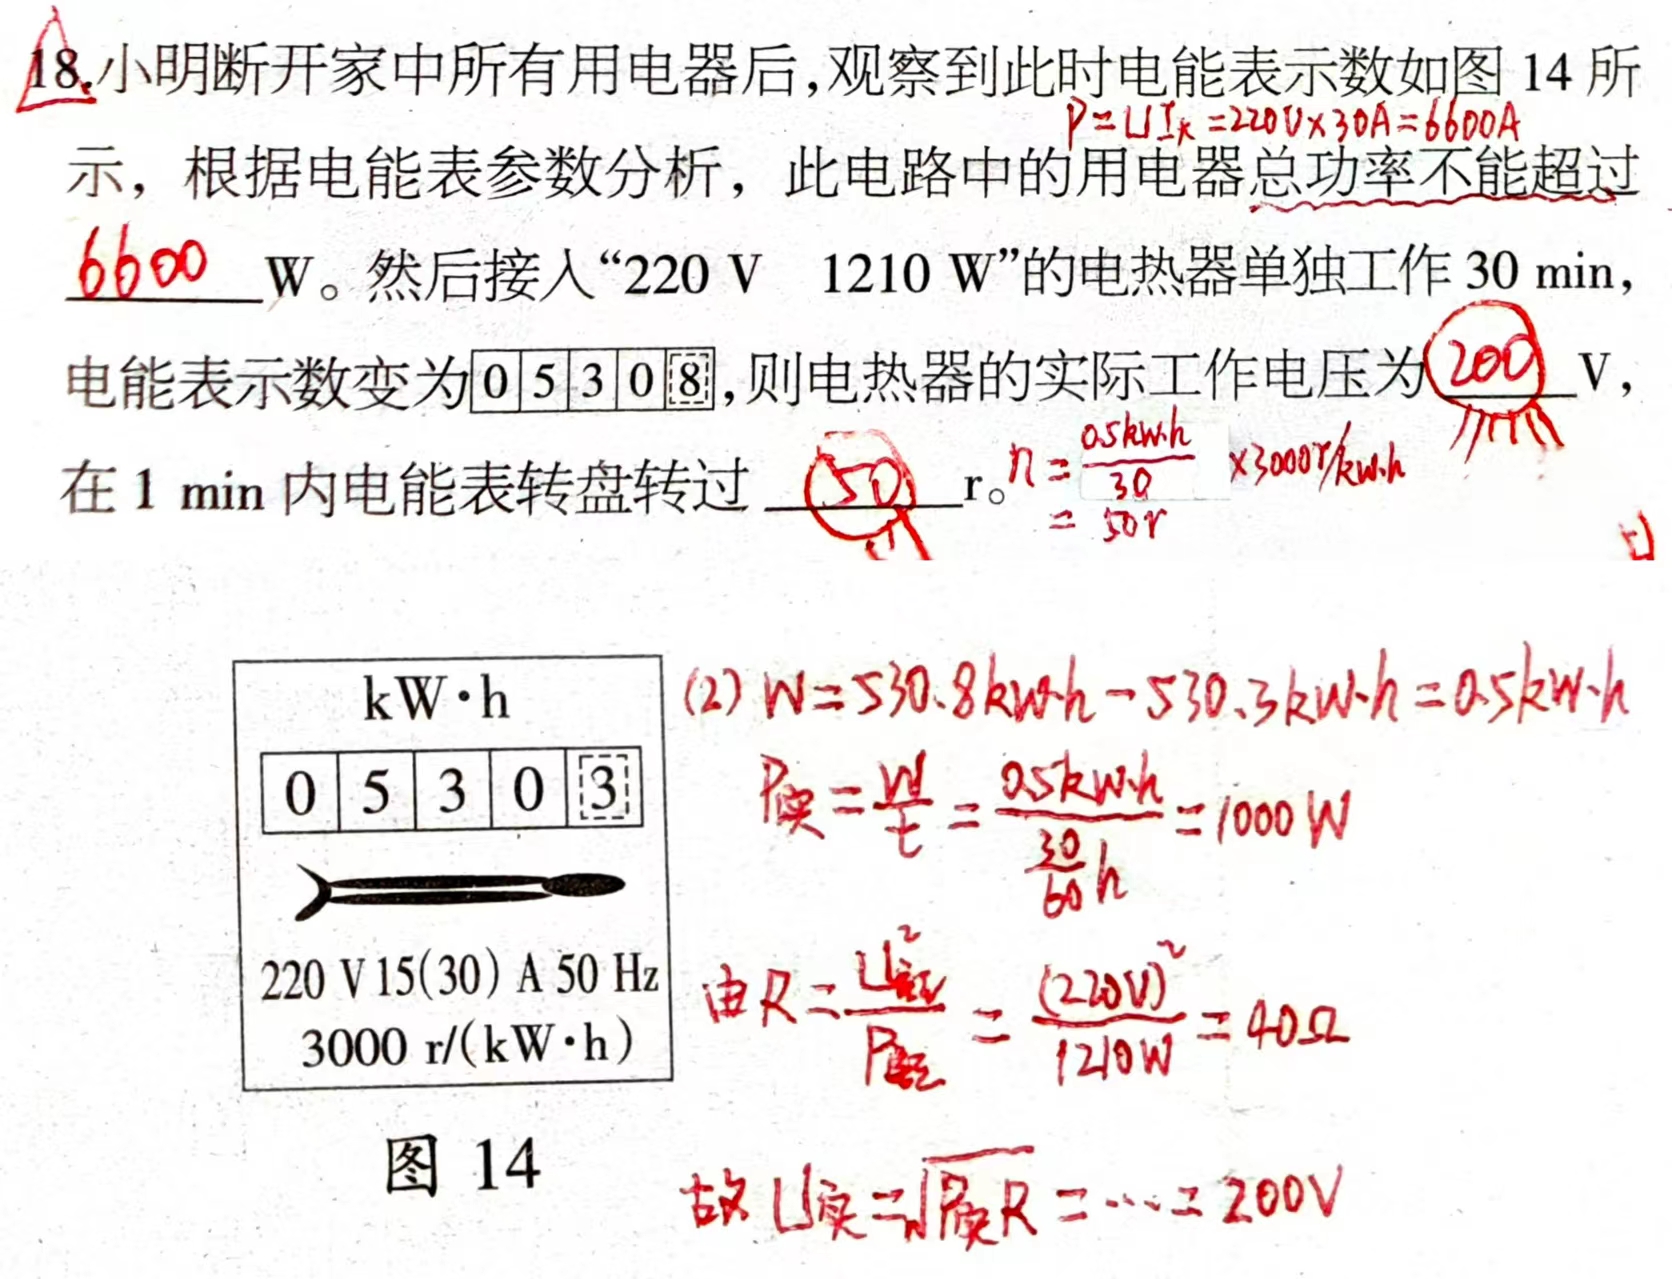 18.小明断开家中所有用电器后,观察到此时电能表示数如图 14 所
P=UIx=220V×30A=6600A
示，根据电能表参数分析，此电路中的用电器总功率不能超过
6600 W。然后接入“220 V 1210 W”的电热器单独工作 30 min,
电能表示数变为 0 5 3 0 8 ,则电热器的实际工作电压为 200 V,
在 1 min 内电能表转盘转过 50 r。 n = 0.5kW·h/30 ×3000r/kw.h
= 50r
kW·h
0 5 3 0 3
220 V 15(30) A 50 Hz
3000 r/(kW·h)
图 14
(2) W=530.8kW·h-530.3kW·h=0.5kW·h
P实 = W/t = 0.5kW·h / (30/60 h) = 1000 W
由R = U额²/P额 = (220V)²/1210W = 40Ω
故 U实=√P实R = … = 200V